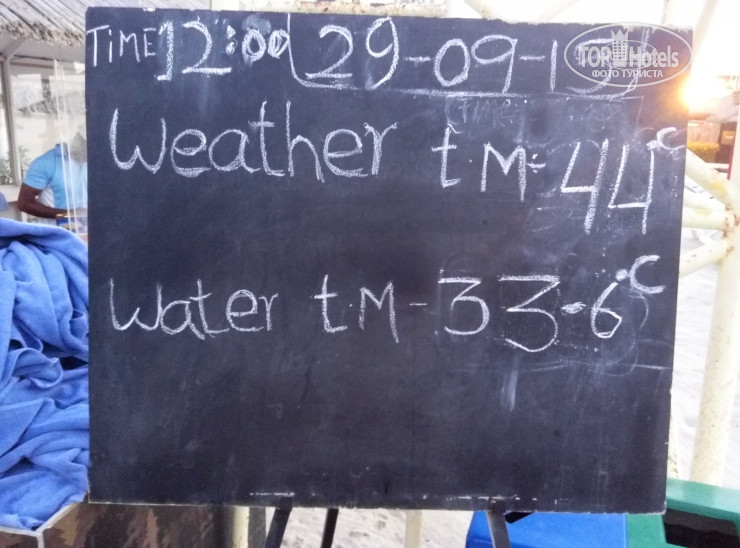 TIME 12:00 29-09-15
Weather t.M- 44°C
Water t.M-33.6°C
TOPHotels
ФОТО ТУРИСТА